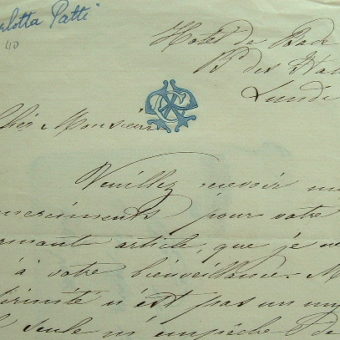 rlotta Patti
110
Hotel de Bade
Bd des Ita
Lundi
Cher Monsieur
Veuillez recevoir m
merciments pour votre
rmant article, que je
à votre bienveillance M
n'est pas un
seule m'empêche